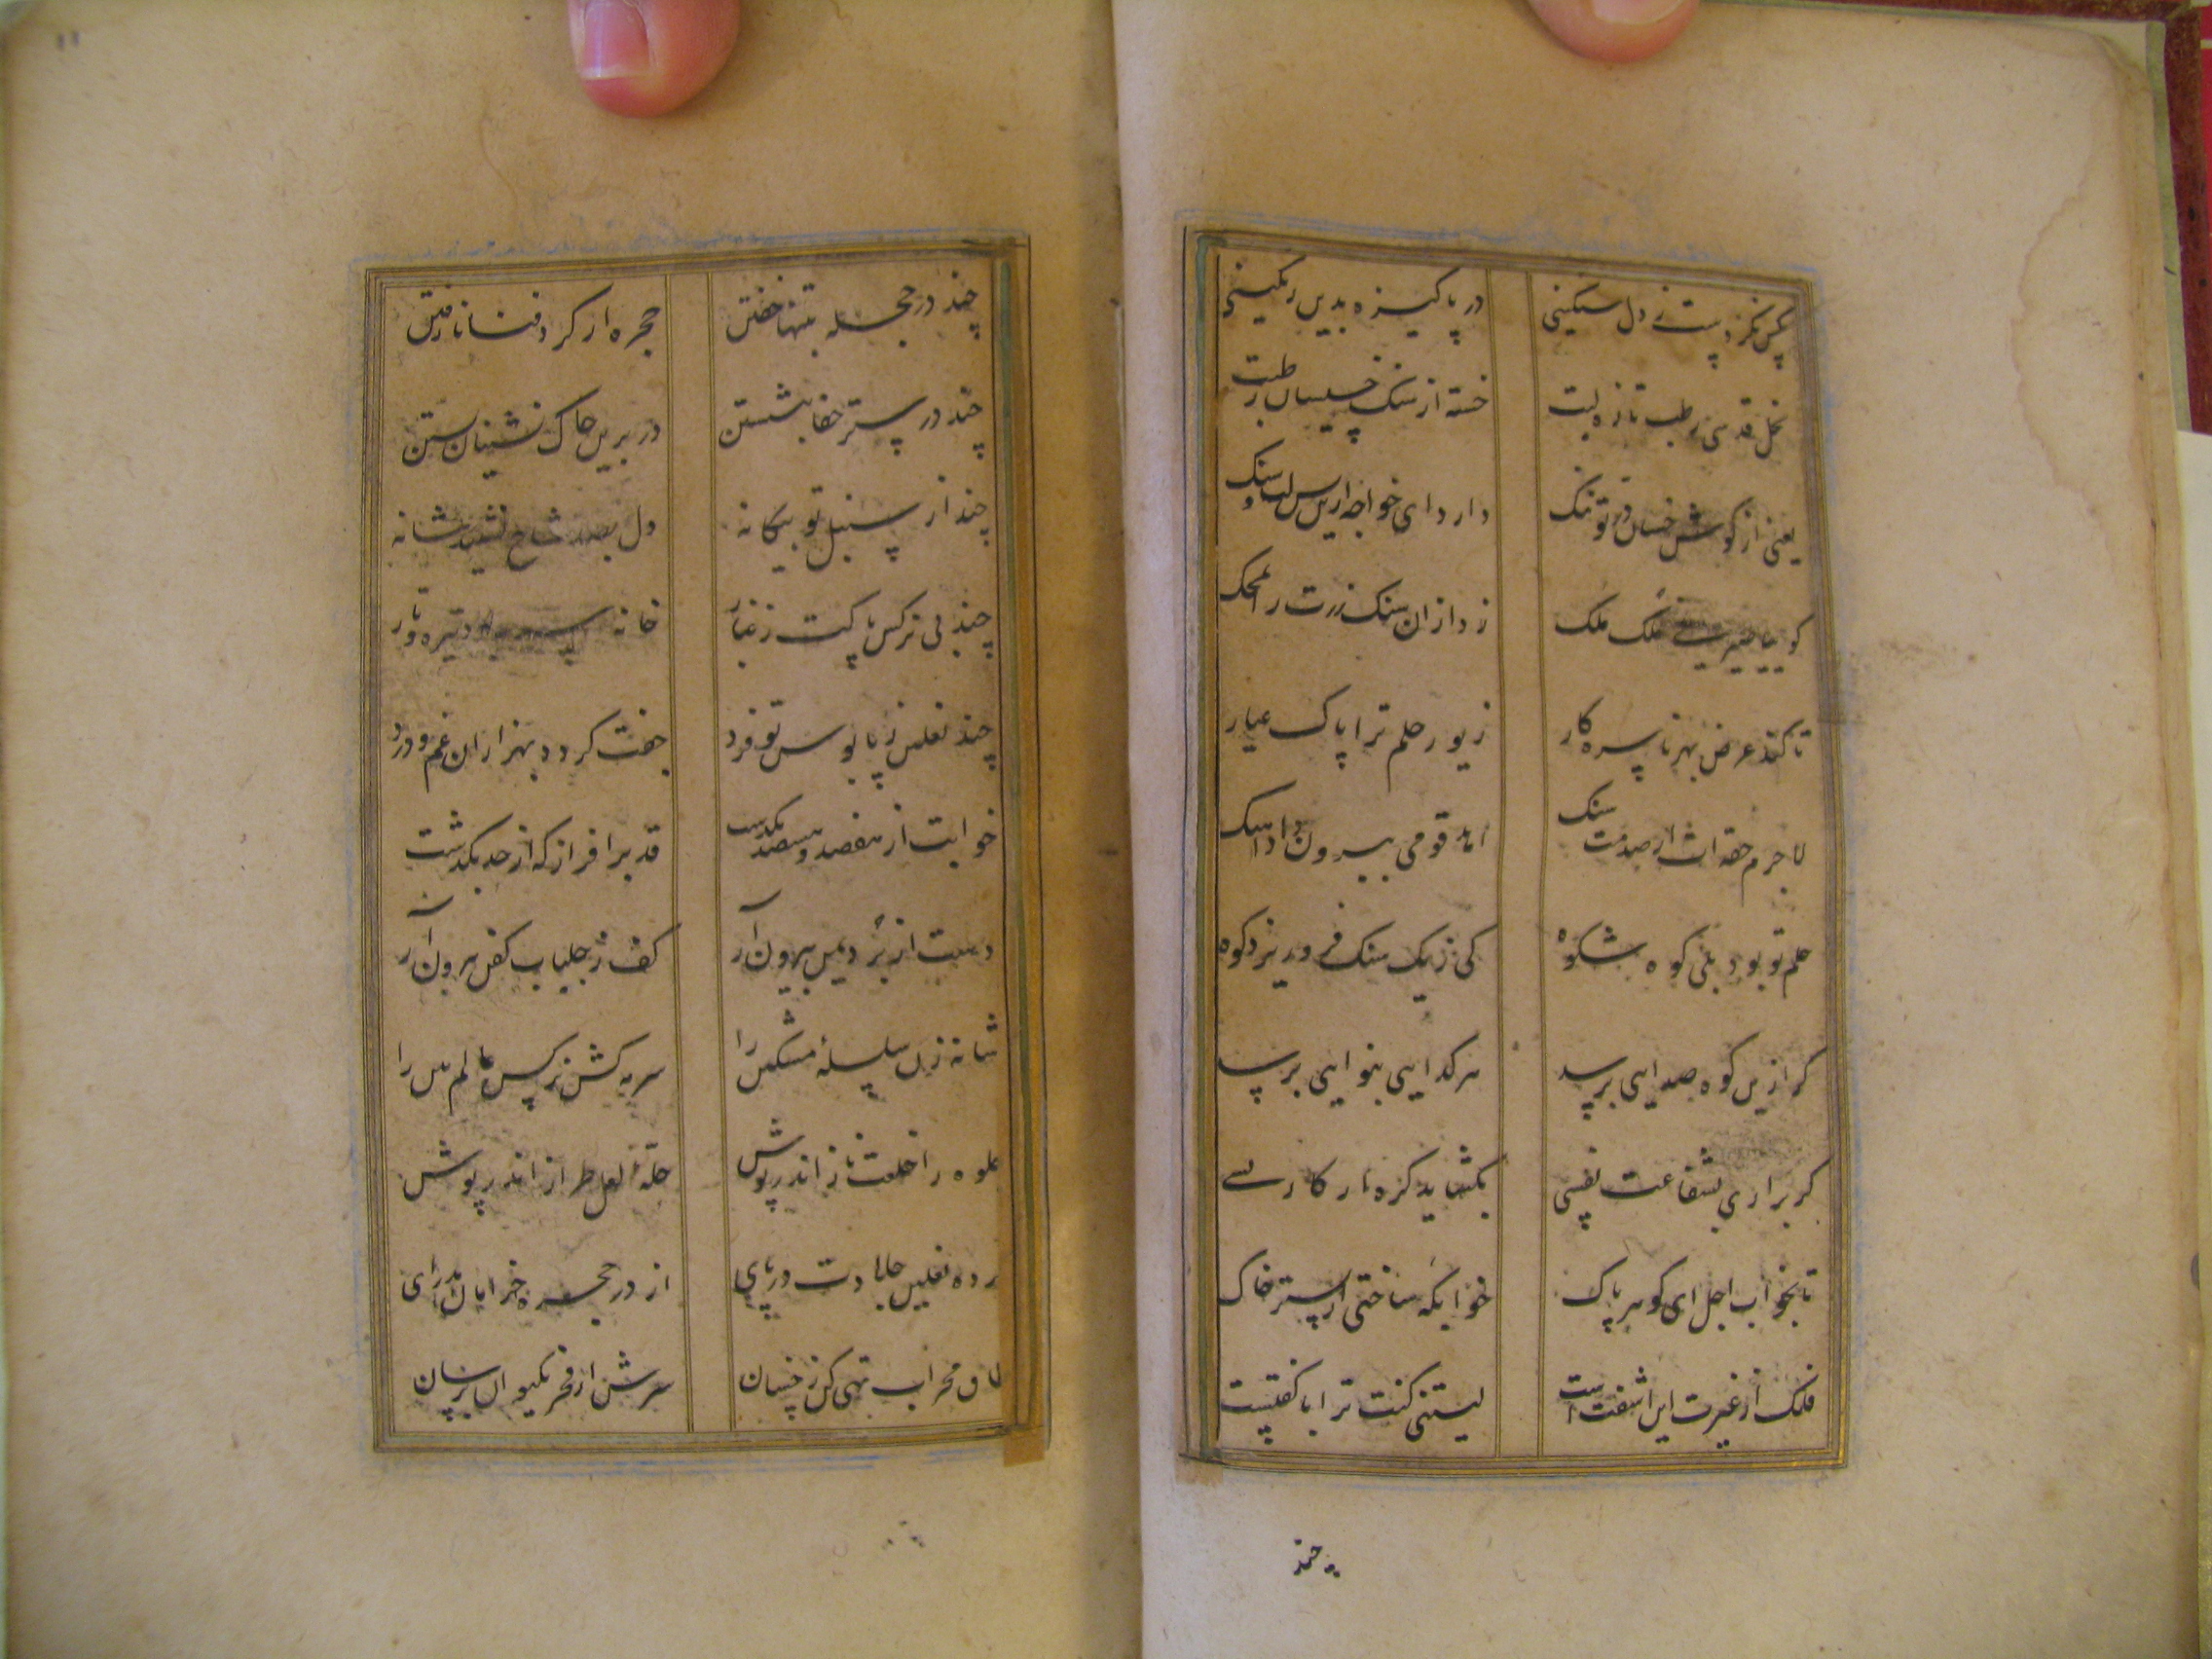 کس نکردست ز دل سنکینی در پاکیزه بدین رنکینی
نخل قدسی رطب تازه لبت خسته از سنک خسیسان رطبت
یعنی از کوشش خسان در تو تنک دارد ای خواجه ازین سان لب و سنک
کوییا صیرفی ملک ملک زد از ان سنک زرت را بمحک
تا کند عرض بهر ناسره کار زیور حلم ترا پاک عیار
لاجرم حقه ات از صدمت سنک قومی بیرون داد
حلم تو بود بلی کوه شکوه کی ز یک سنک فرو ریزد کوه
کر ازین کوه صدایی برسد هر کدایی بنوایی برسد
کر براری بشفاعت نفسی بکشاید کره از کار کسی
تا بخواب اجل ای کوهر پاک خوابکه ساختی از بستر خاک
فلک از غیرت این اشفتست لیتنی کنت ترابا کفتست
چند
چند در حجله تنها خفتن حجره از کرد فنا نارفتن
چند در بستر خفا بنشستن در برین خاک نشینان بستن
چند از سنبل تو بیکانه دل بصد شاخ نشیند شانه
چند بی نرکس پاکت ز غبار خانه سرمه سیه و تیره و تار
چند نعلین ز پابوس تو فرد جفت کردد بهزاران غم و درد
خوابت از هفصد و هشصد بکذشت قد برافراز که از حد بکذشت
دست از برد یمن بیرون آر کف ز جلباب کفن بیرون آر
شانه زن سلسلهٔ مشکین را سرمه کش نرکس عالم بین را
جلوه را خلعت ناز اندر پوش حلهٔ لعل طراز اندر پوش
کرده نعلین جلادت در پای از در حجره خرامان بدر آی
طاق محراب تهی کن ز خسان سرش از فخر بکیوان برسان